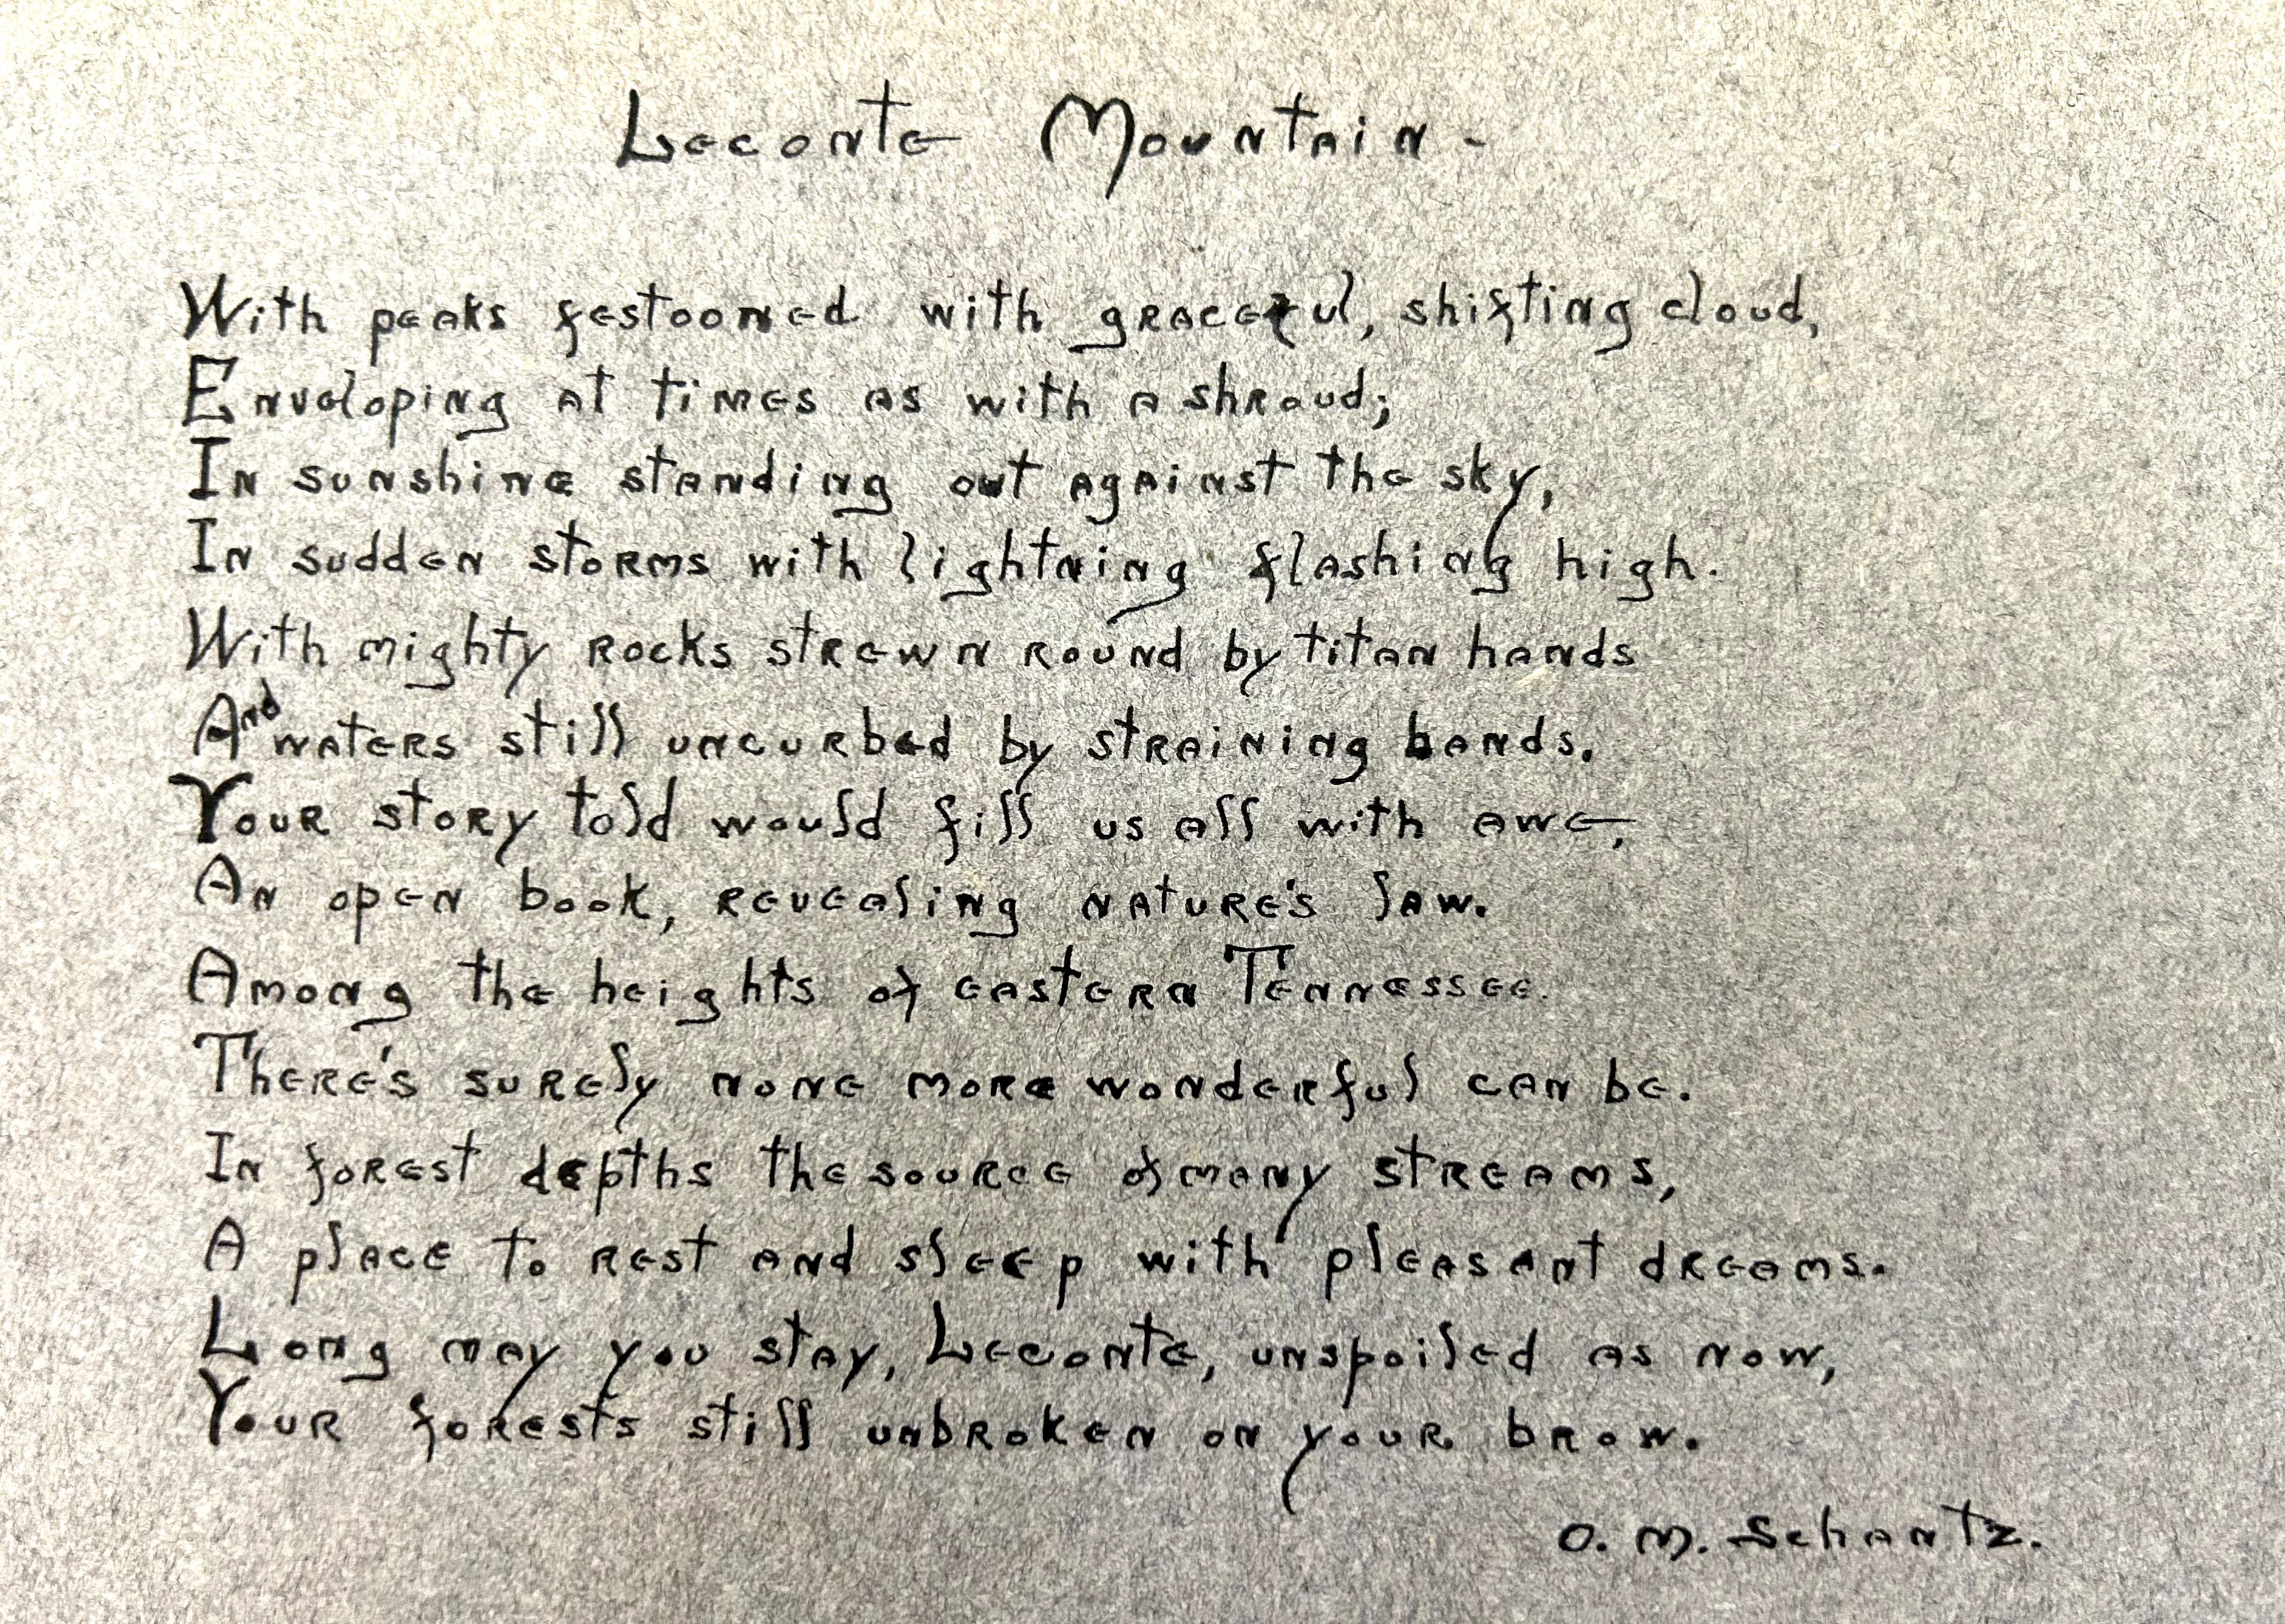 Leconte Mountain -
With peaks festooned with graceful, shifting cloud,
Enveloping at times as with a shroud;
In sunshine standing out against the sky,
In sudden storms with lightning flashing high.
With mighty rocks strewn round by titan hands
And waters still uncurbed by straining bands.
Your story told would fill us all with awe,
An open book, revealing nature's law.
Among the heights of eastern Tennessee.
There's surely none more wonderful can be.
In forest depths the source of many streams,
A place to rest and sleep with pleasant dreams.
Long may you stay, Leconte, unspoiled as now,
Your forests still unbroken on your brow.
O. M. Schantz.